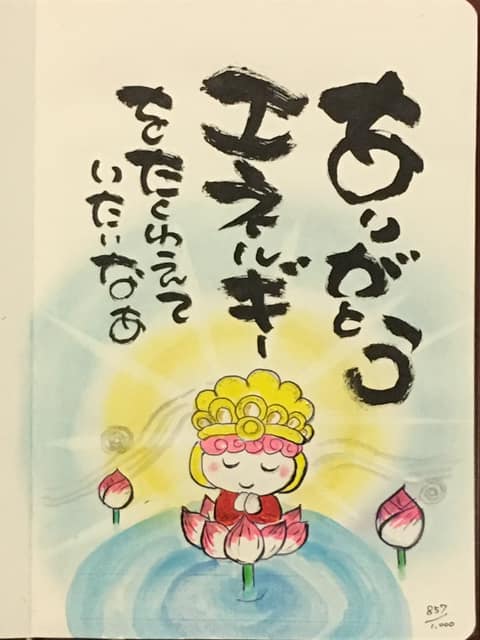 ありがとう
エネルギー
をたくわえて
いたいなあ
857/1,000